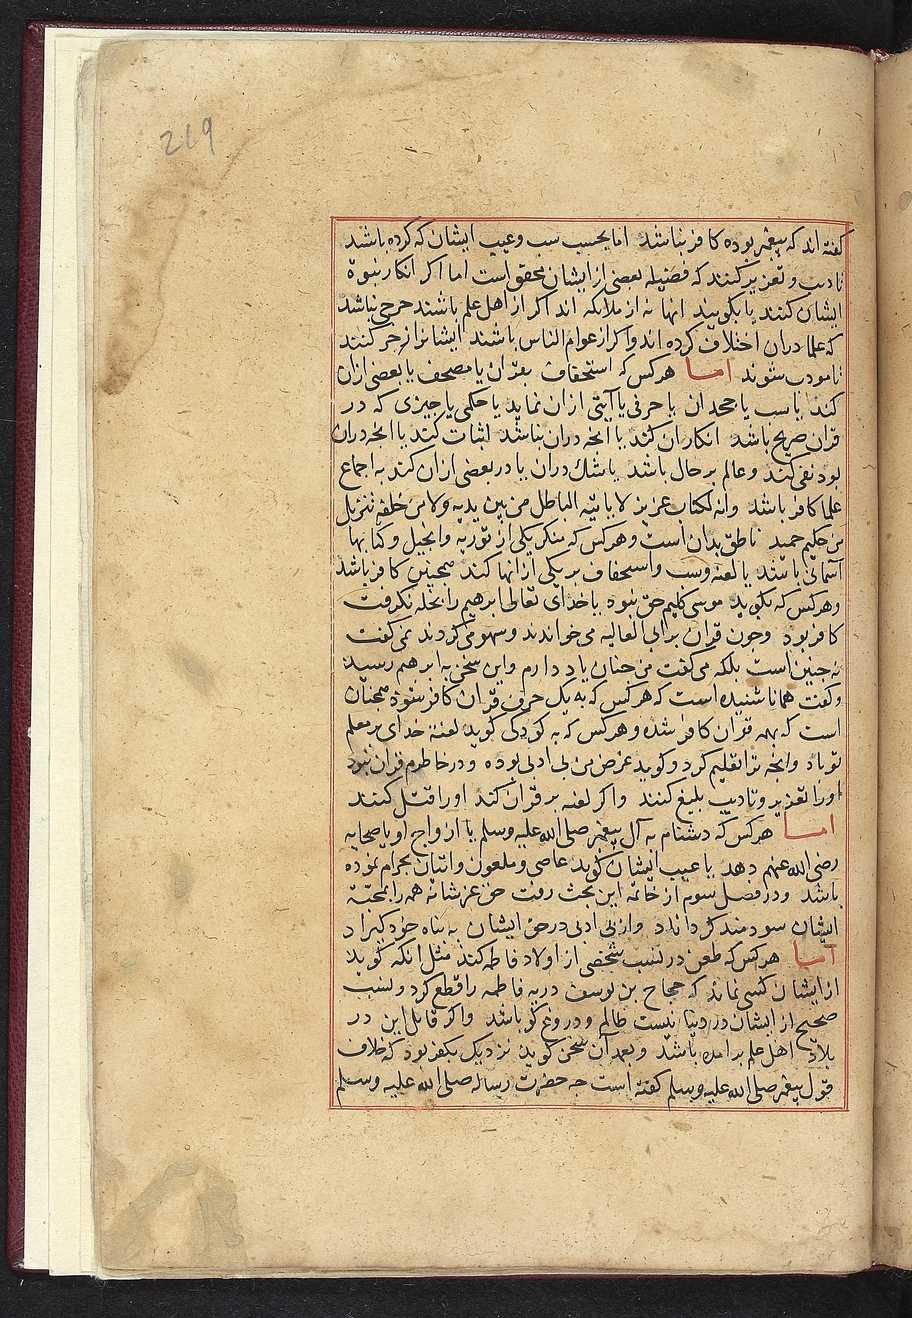 219
گفته اند که پیغمبر بوده کافر نباشد اما بحسب سب وعیب ایشان که کرده باشد
تادیب وتعزیر کنند که فضیله بعضی از ایشان محقق است اما اکر انکار نبوة
ایشان کنند یا بکویند انها نه از ملائکه اند اکر از اهل علم باشند حرجی نباشد
که علما دران اختلاف کرده اند واکر از عوام الناس باشند ایشانرا زجر کنند
تا مودب شوند اما هرکس که استخفاف بقران یا مصحف یا بعضی ازان
کند یا سب یا جحد ان یا حرفی یا آیتی ازان نماید یا حکمی یا چیزی که در
قران صریح باشد انکار ان کند یا انچه دران نباشد اثبات کند یا انچه دران
بود نفی کند وعالم بر حال باشد یا شک دران یا در بعضی ازان کند به اجماع
علما کافر باشد وانه لکتاب عزیز لا یاتیه الباطل من بین یدیه ولا من خلفه تنزیل
من حکیم حمید ناطق بدان است وهرکس که منکر یکی از توریه وانجیل وکتابها
آسمانی باشد یا لعنه وسب واستخفاف بر یکی از انها کند همچنین کافر باشد
وهرکس که بکوید موسی کلیم حق نبود یا خدای تعالی ابرهیم را بخله نکرفت
کافر بود وچون قران بر ابی العالیه می خواندند وسهو می کردند نمی کفت
نه چنین است بلکه می کفت من چنان یاد دارم واین سخن به ابرهیم رسید
وکفت همانا شنیده است که هرکس که به یک حرف قران کافر شود همچنان
است که بهمه قران کافر شده وهرکس که به کودکی کوید لعنة خدای بر معلم
تو باد وانچه ترا تعلیم کرد وکوید غرض من بی ادبی بوده ودر خاطرم قران نبود
اورا تعزیر وتادیب بلیغ کنند واکر لعنه بر قران کند اورا قتل کنند
اما هرکس که دشنام به آل پیغمبر صلی الله علیه وسلم یا ازواج او یا صحابه
رضی الله عنهم دهد یا عیب ایشان کوید عاصی وملعون واتیان بحرام نموده
باشد ودر فصل سوم از خاتمه این بحث رفت حق عز شانه همه را بمحبة
ایشان سودمند کرداناد واز بی ادبی در حق ایشان به پناه خود کیراد
اما هرکس که طعن در نسب شخصی از اولاد فاطمه کند مثل انکه کوید
از ایشان کسی نماند که حجاج بن یوسف دریه فاطمه را قطع کرد ونسب
صحیح از ایشان در دنیا نیست ظالم ودروغ کو باشد واکر قائل این در
بلاد اهل علم برامده باشد وبعد آن سخن کوید نزدیک بکفر بود که خلاف
قول پیغمبر صلی الله علیه وسلم کفته است چه حضرت رساله صلی الله علیه وسلم